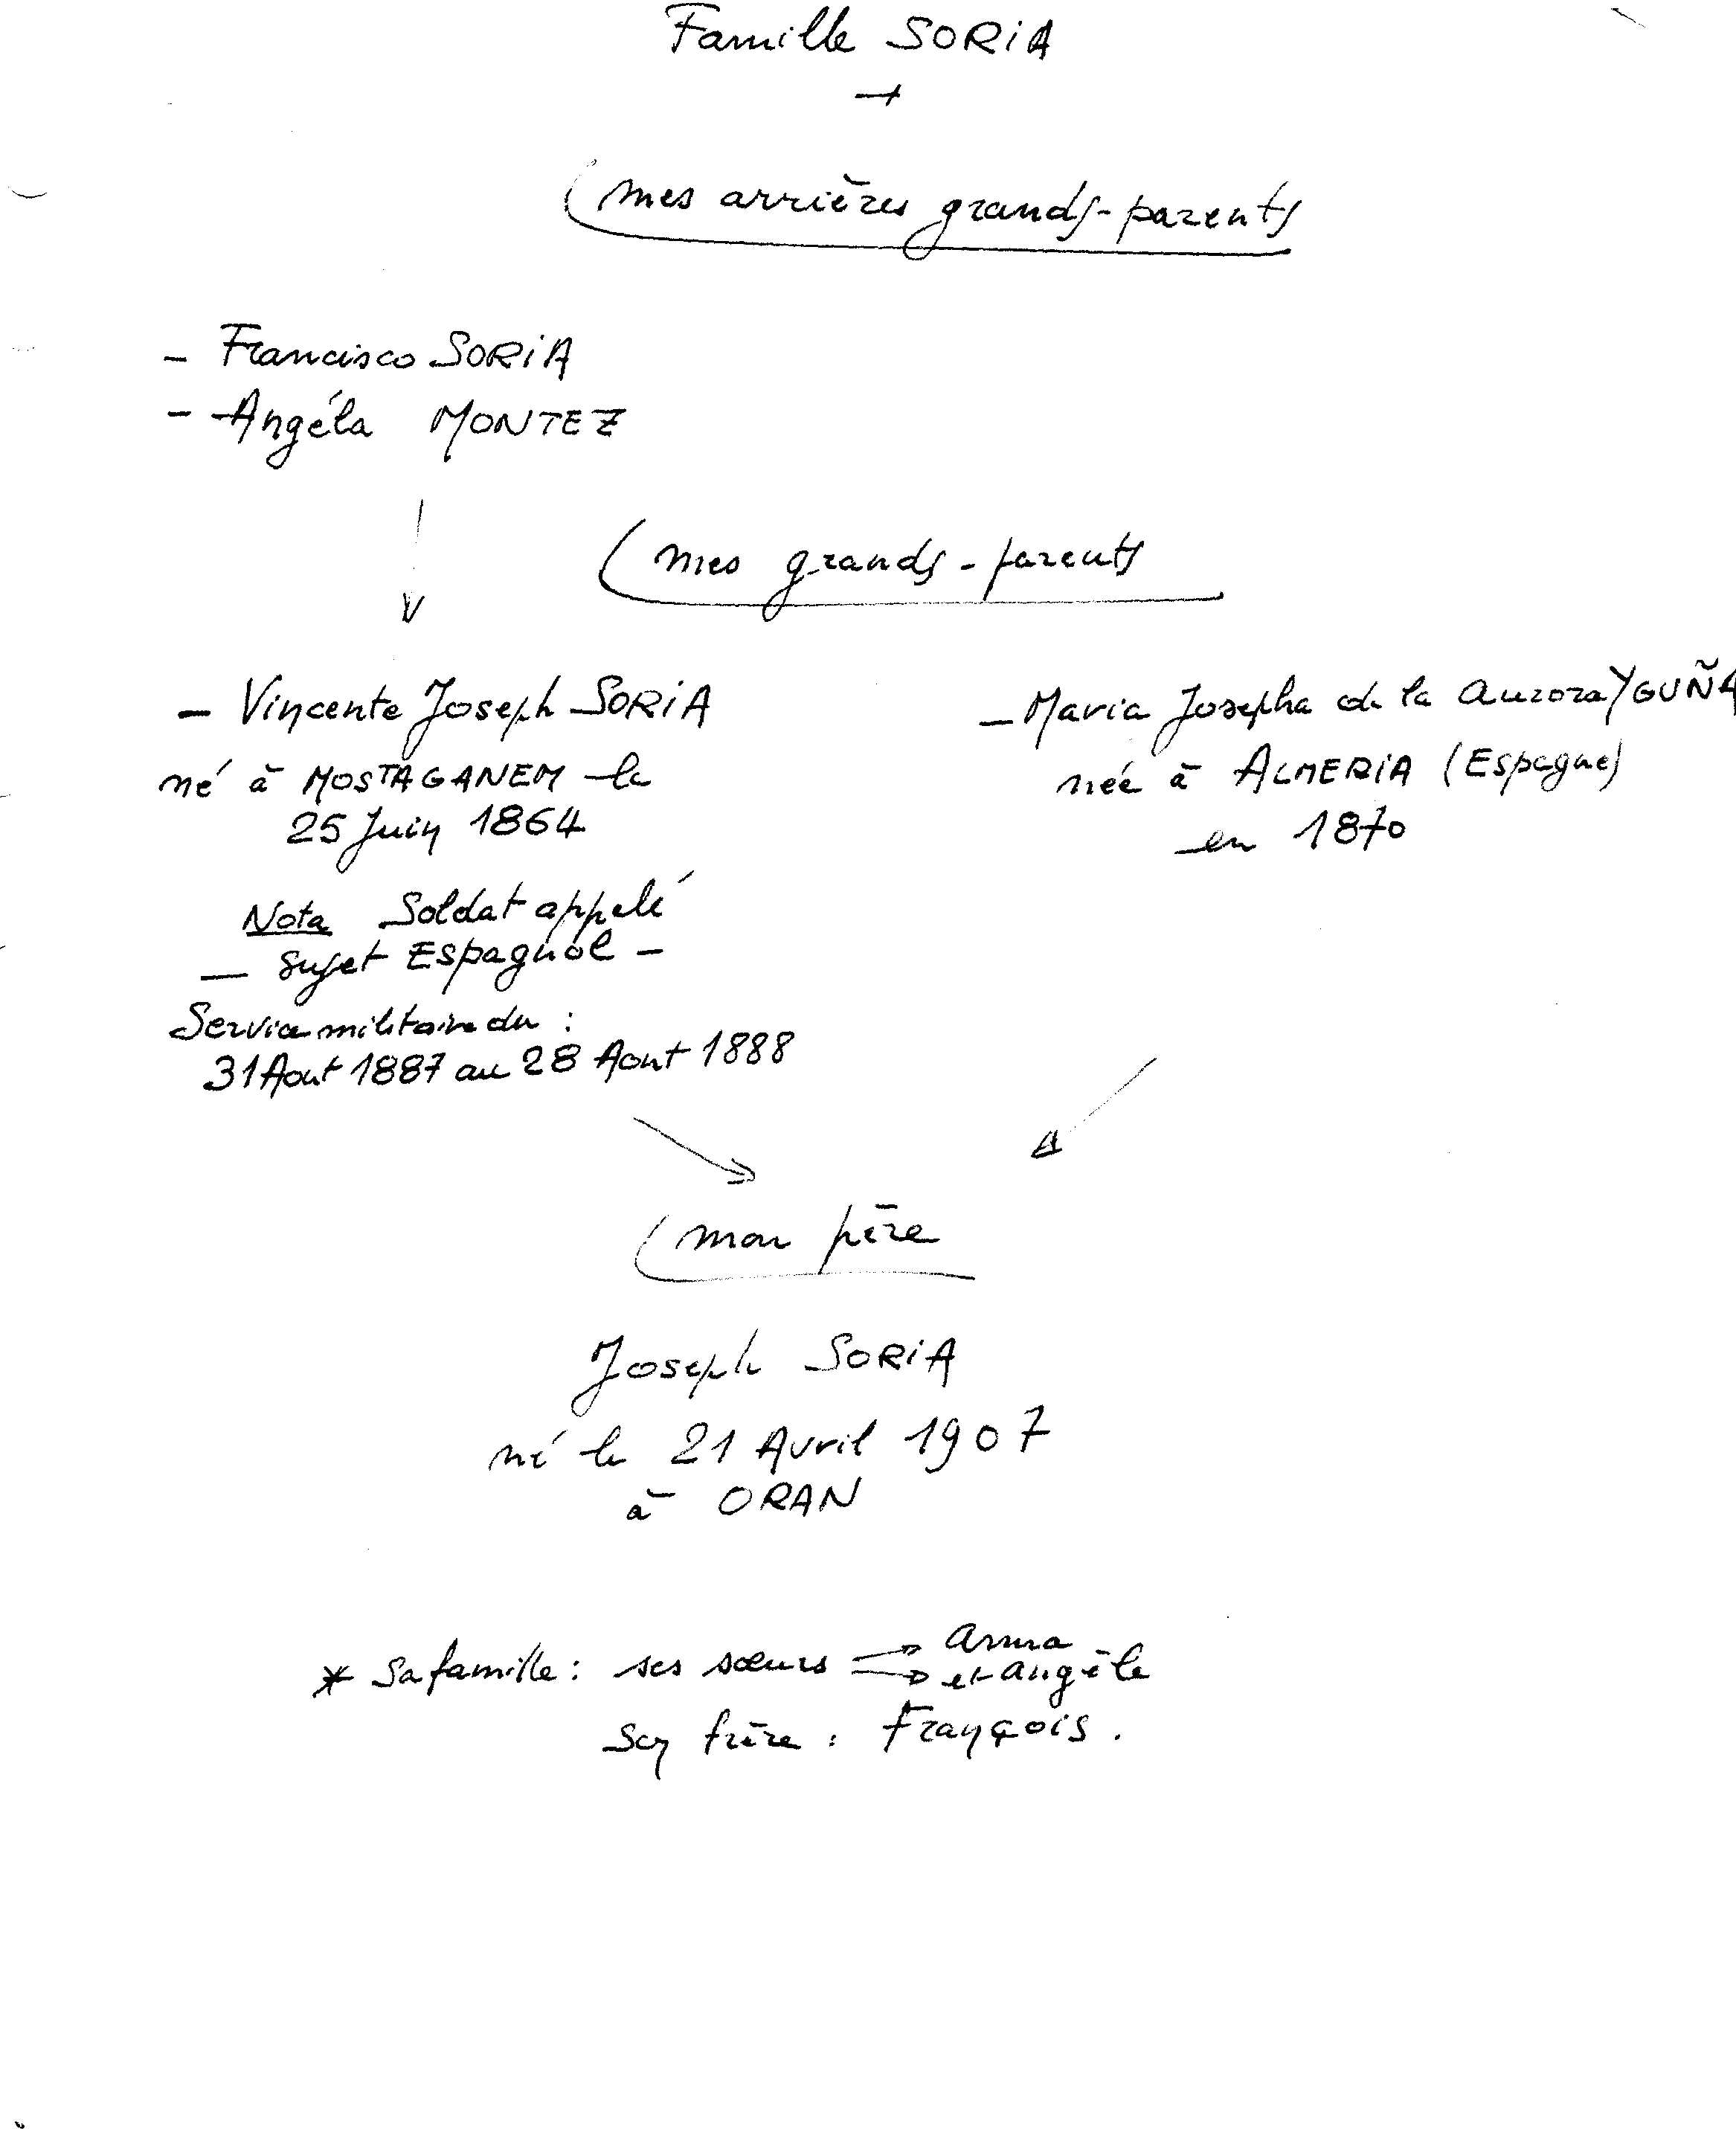 Famille SORIA
mes arrières grands-parents
- Francisco SORIA
- Angéla MONTEZ
mes grands-parents
- Vincente Joseph SORIA
né à MOSTAGANEM le
25 Juin 1864
Nota Soldat appelé
- Sujet Espagnol -
Service militaire du :
31 Aout 1887 au 28 Aout 1888
- Maria Josepha de la Aurora YGUÑA
née à ALMERIA (Espagne)
en 1870
mon père
Joseph SORIA
né le 21 Avril 1907
à ORAN
* Sa famille : ses sœurs → Anna
→ et Angèle
Son frère : François.